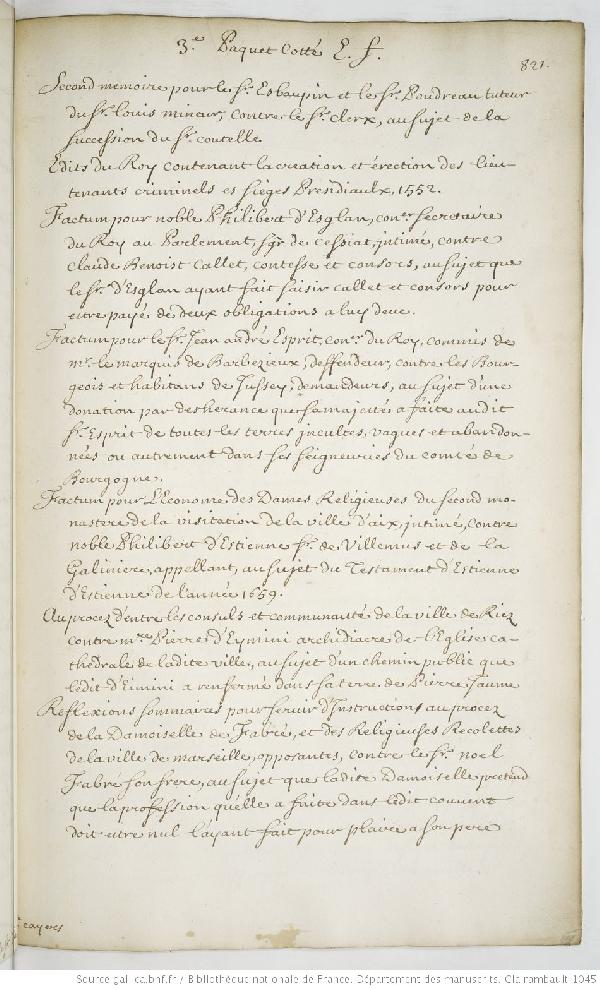 3.e Paquet Cotté E. f.
821.
Second memoire pour le Sr. Esbaupin et le Sr. Boudreau tuteur
du Sr. Louis mineur, contre le Sr. Clerx, au sujet de la
succession du Sr. coutelle
Edits du Roy contenant la creation et érection des lieu-
tenants criminels es sieges Presidiaulx, 1552.
Factum pour noble Philibert d'Esglan, conr. secretaire
du Roy au Parlement, sgr. de Cessiat, intimé, contre
Claude Benoist Callet, contesse et consors, au sujet que
le Sr. d'Esglan ayant fait saisir callet et consors pour
estre payé de deux obligations a luy deue.
Factum pour le Sr. Jean andré Esprit, conr. du Roy, commis de
mr. le marquis de Barbezieux, deffendeur, contre les Bour-
geois et habitans de Jussey, demandeurs, au sujet d'une
donation par desherance que sa majesté a faite audit
Sr. Esprit de toutes les terres incultes, vagues et abandon-
nées ou autrement dans ses seigneuries du comté de
Bourgogne.
Factum pour L'Econome des Dames Religieuses du second mo-
nastere de la visitation de la ville d'aix, intimé, contre
noble Philibert d'Estienne Sr. de Villemus et de la
Galiniere, appellant, au sujet du Testament d'Estienne
d'Estienne de l'année 1659.
Au procez d'entre les consuls et communauté de la ville de Riez
contre mre. Pierre d'Eymini archidiacre de l'Eglise ca-
thedrale de ladite ville, au sujet d'un chemin publie que
ledit d'Eimini a renfermé dans sa terre de Pierre Jaume
Reflexions sommaires pour servir d'Instructions au procez
de la Damoiselle de Fabre, et des Religieuses Recolettes
de la ville de marseille, opposantes, contre le Sr. noel
Fabré son frere, au sujet que ladite Damoiselle pretend
que la profession qu'elle a faite dans ledit couvent
doit estre nul l'ayant fait pour plaire a son pere
cayers
Source gallica.bnf.fr / Bibliothèque nationale de France. Département des manuscrits. Clairambault 1045